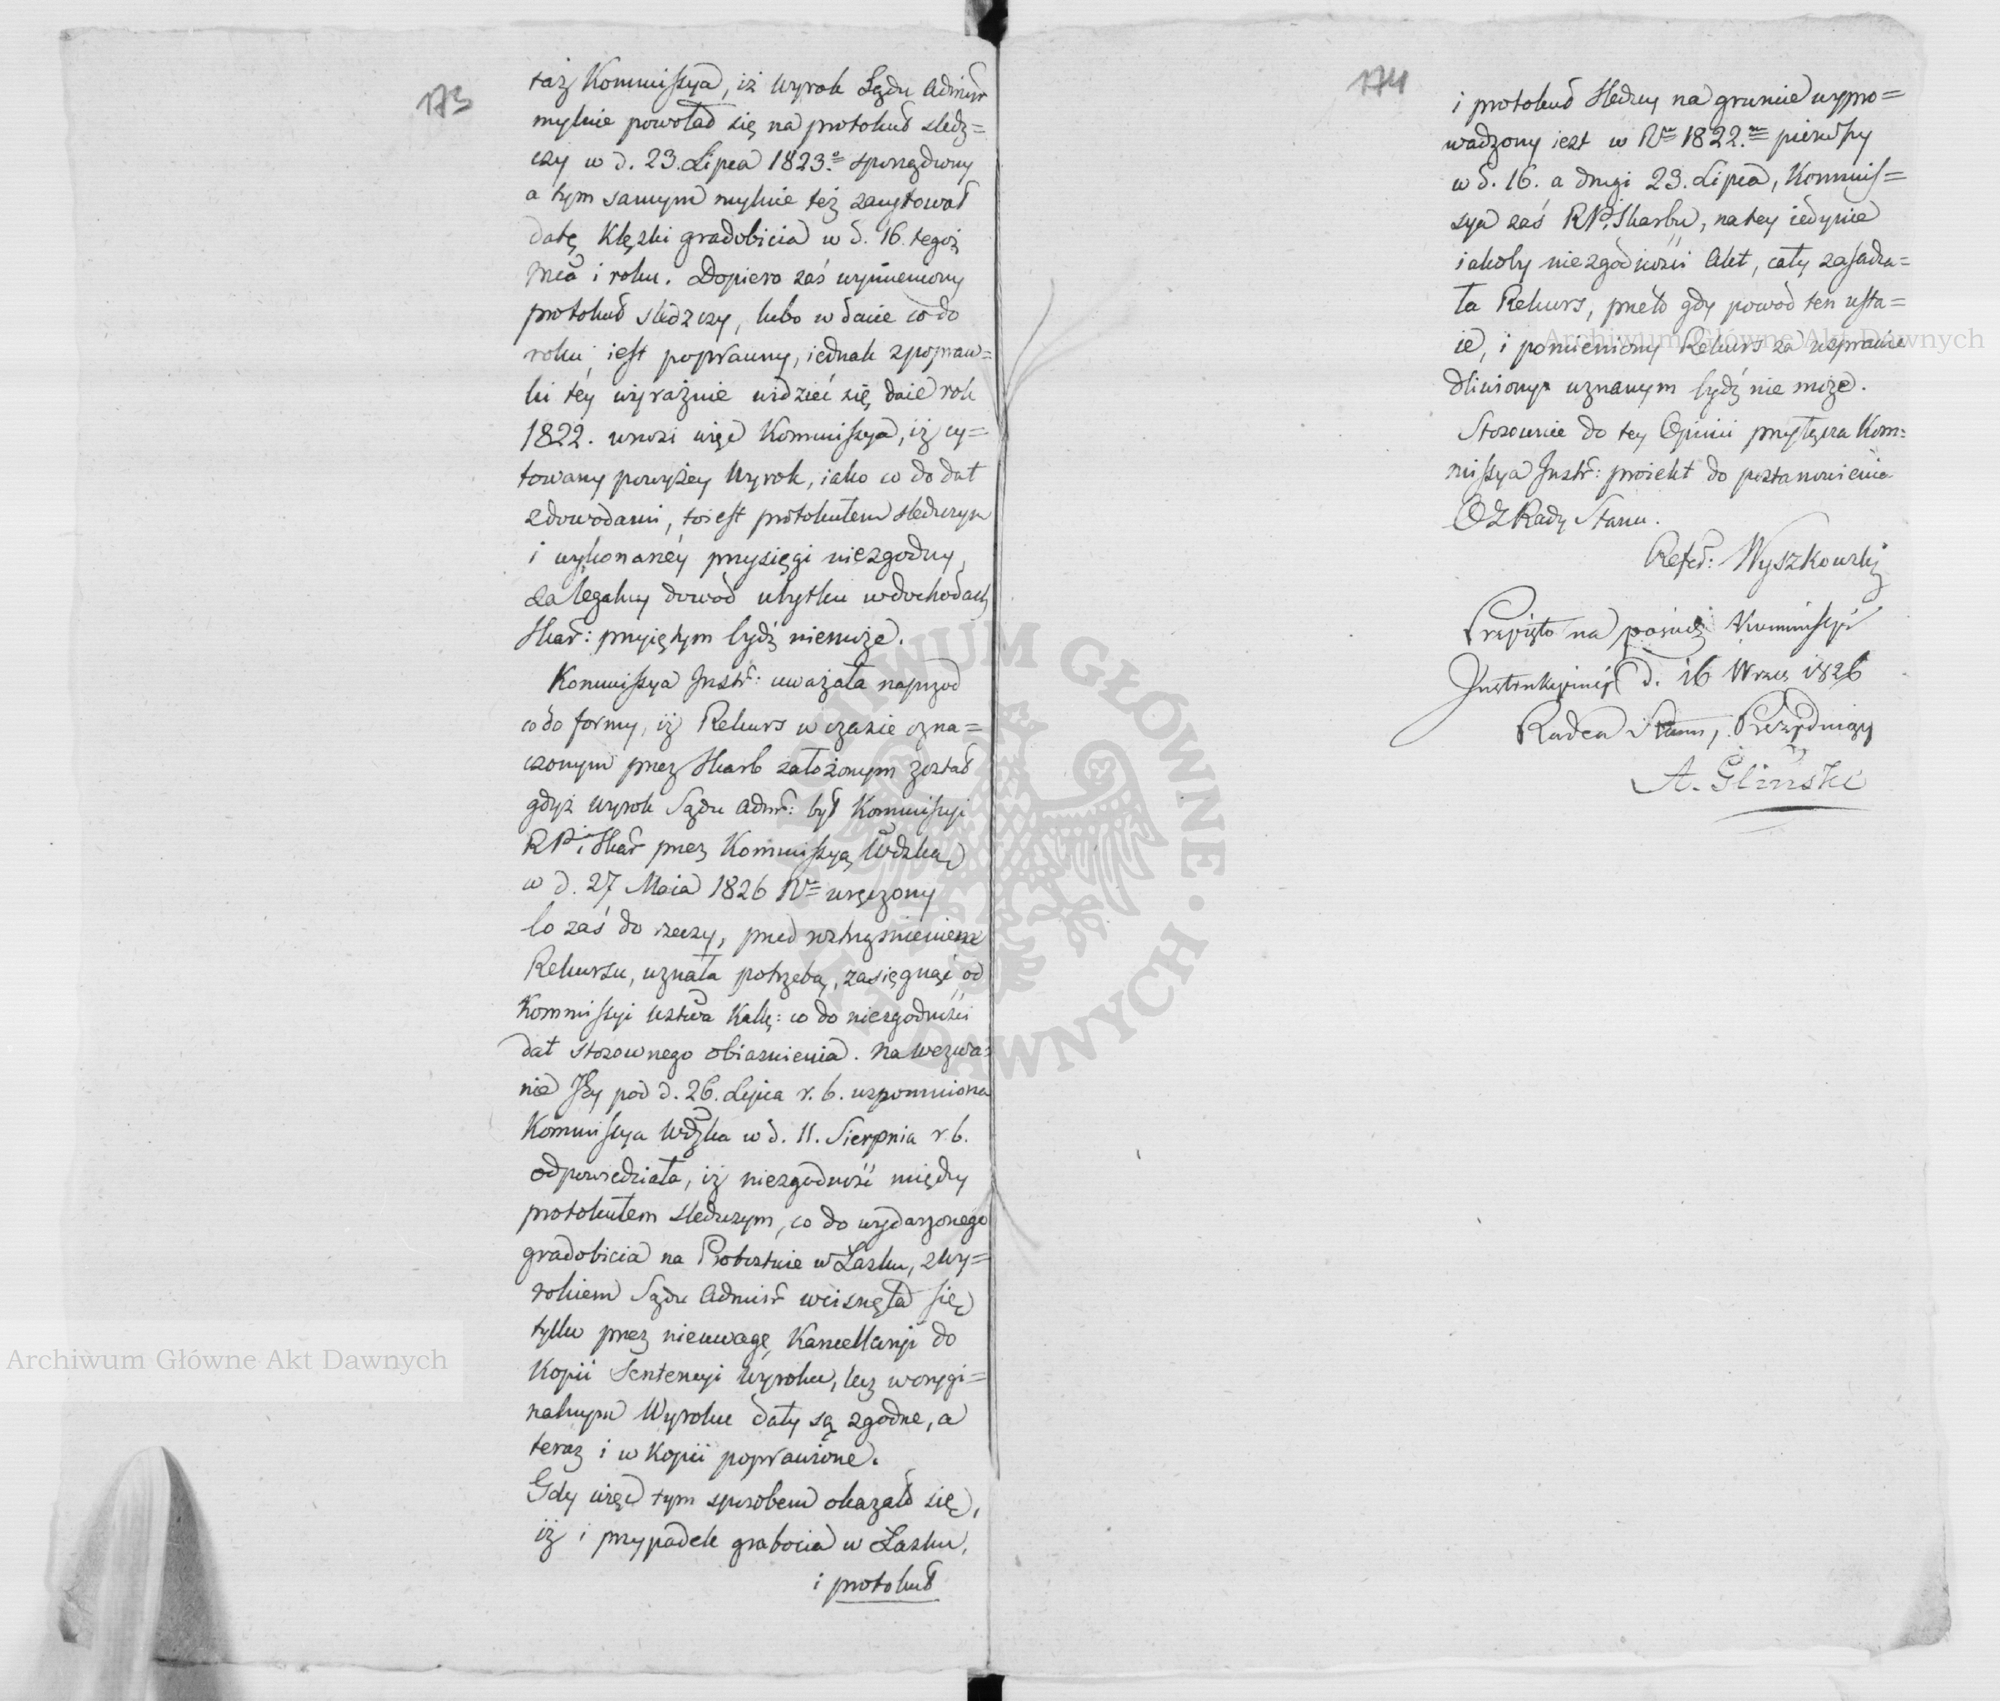 173
taż Kommissya, iż Wyrok Sądu Admstr
mylnie powołał się na protokuł sledz=
czy w d. 23. Lipca 1823.º sporządzony
a tym samym mylnie też zacytował
datę Klęzki gradobicia w d. 16. tegoż
Mca i roku. Dopiero zaś wymieniony
protokuł sledzczy, lubo w dacie co do
roku, iest poprawny, iednak z popraw=
ki tey wyraźnie widzieć się daie rok
1822. wnosi więc Kommissya, iż cy=
towany powyżey Wyrok, iako co do dat
z dowodami, to iest protokułem sledczym
i wykonaney przysięgi niezgodny,
za legalny dowód ubytku w dochodach
Skar: przyiętym bydź niemoże.
Kommissya Instr: uważała naprzod
co do formy, iż Rekurs w czasie ozna=
czonym przez Skarb założonym został
gdyż Wyrok Sądu Admr: był Kommissyi
RP. i Skar przez Kommissyą Wdzką
w d. 27 Maia 1826 Rº wręczony
Co zaś do rzeczy, przed roztrząśnieniem
Rekursu, uznała potrzebą, zasięgnąć od
Kommissyi Wztwa Kalię: co do niezgodności
dat stosownego obiaśnienia. Na wezwa=
nie Jey pod d. 26. Lipca r. b. wspomniona
Kommissya Wdzka w d. 11. Sierpnia r. b.
odpowiedziała, iż niezgodność między
protokułem sledczym, co do wydarzonego
gradobicia na Probostwie w Łasku, z Wy=
rokiem Sądu Admstr wcisnęła się
tylko przez nieuwagę Kancellaryi do
Kopii Sentencyi Wyroku, lecz w orygi=
nalnym Wyroku daty są zgodne, a
teraz i w Kopii poprawione.
Gdy więc tym sposobem okazało się,
iż i przypadek grabocia w Łasku,
i protokuł
174
i protokuł sledczy na gruncie wypro=
wadzony iest w Rº 1822.m pierwszy
w d. 16. a drugi 23. Lipca, Kommis=
sya zaś RP. Skarbu, na tey iedynie
iakoby niezgodności Akt, cały zasadza=
ła Rekurs, przeto gdy powod ten usta=
ie, i pomieniony Rekurs za usprawie
dliwiony uznanym bydź nie może.
Stosownie do tey Opinii przyłącza Kom=
missya Instr: proiekt do postanowienia
OZ Rady Stanu.
Refer: Wyszkowski
Przyięto na posiedz. Kommissyi
Instrukcyiney d. 16 Wrześ 1826
Radca Stanu, Prezyduiący
A. Gliński
Archiwum Główne Akt Dawnych
Archiwum Główne Akt Dawnych
ARCHIWUM GŁÓWNE · AKT DAWNYCH ·